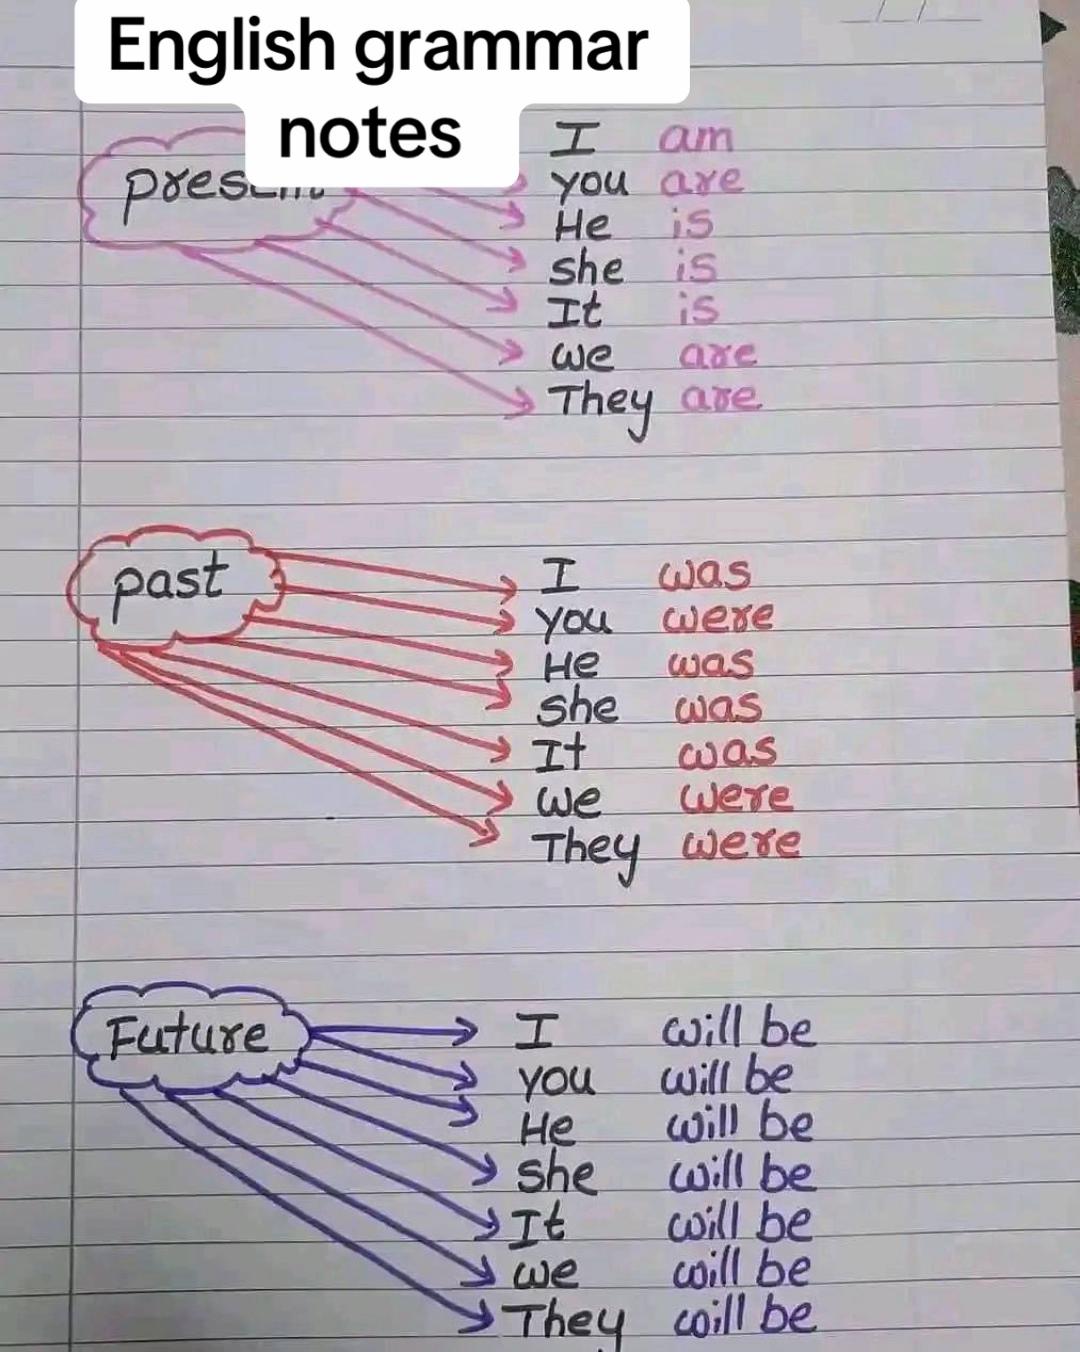 English grammar
notes
present
I am
you are
He is
she is
It is
we are
They are
past
I was
you were
He was
she was
It was
we were
They were
Future
I will be
you will be
He will be
she will be
It will be
we will be
They will be